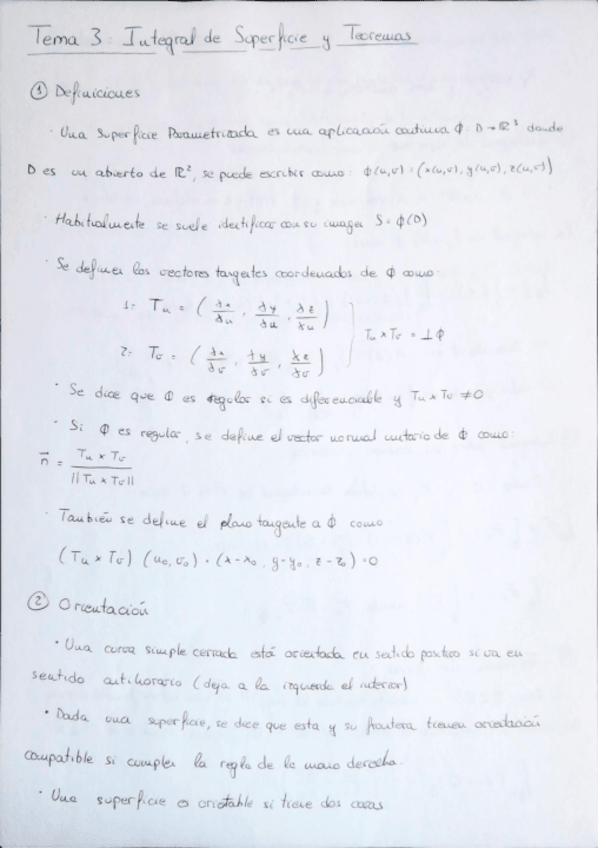 Tema 3: Integral de Superficie y Teoremas
① Definiciones
· Una Superficie Parametrizada es una aplicación continua Φ: D→ℝ³ donde
D es un abierto de ℝ², se puede escribir como: Φ(u,v) = (x(u,v), y(u,v), z(u,v))
· Habitualmente se suele identificar con su imagen S = Φ(D)
· Se definen los vectores tangentes coordenados de Φ como:
1:- Tu = (∂x/∂u, ∂y/∂u, ∂z/∂u)
Tu × Tv = ⊥Φ
2:- Tv = (∂x/∂v, ∂y/∂v, ∂z/∂v)
· Se dice que Φ es regular si es diferenciable y Tu × Tv ≠ 0
· Si Φ es regular, se define el vector normal unitario de Φ como:
n⃗ = Tu × Tv / ||Tu × Tv||
· También se define el plano tangente a Φ como
(Tu × Tv) (u₀, v₀) · (x-x₀, y-y₀, z-z₀) = 0
② Orientación
· Una curva simple cerrada está orientada en sentido positivo si va en
sentido antihorario (deja a la izquierda el interior)
· Dada una superficie, se dice que esta y su frontera tienen orientación
compatible si cumplen la regla de la mano derecha.
· Una superficie es orientable si tiene dos caras